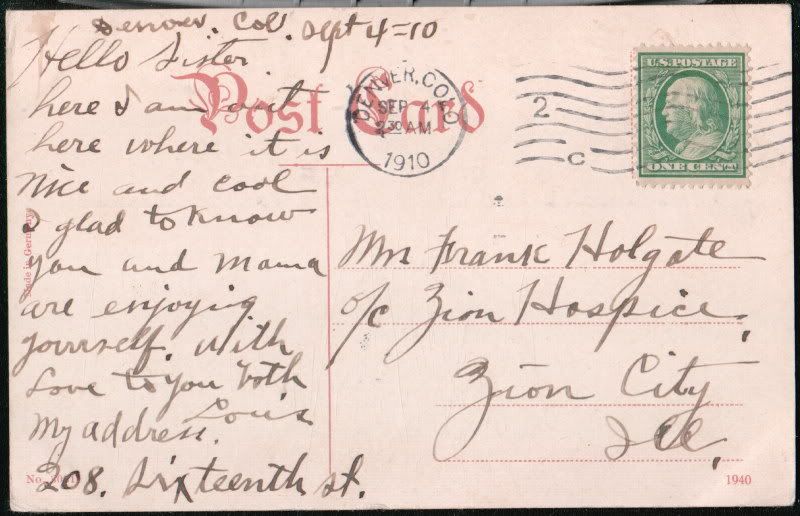 Denver. Col. Sept 4=10
Hello Sister
here I am out
here where it is
nice and cool
I glad to know
you and Mama
are enjoying
yourself. With
Love to you both
Louis
My address.
208. Sixteenth st.
Post Card
DENVER, COLO
SEP 4
2 30 AM
1910
2
C
U.S. POSTAGE
ONE CENT
Mrs Frank Holgate
o/c Zion Hospice.
Zion City
Ill.
Made in Germany
No.
1940